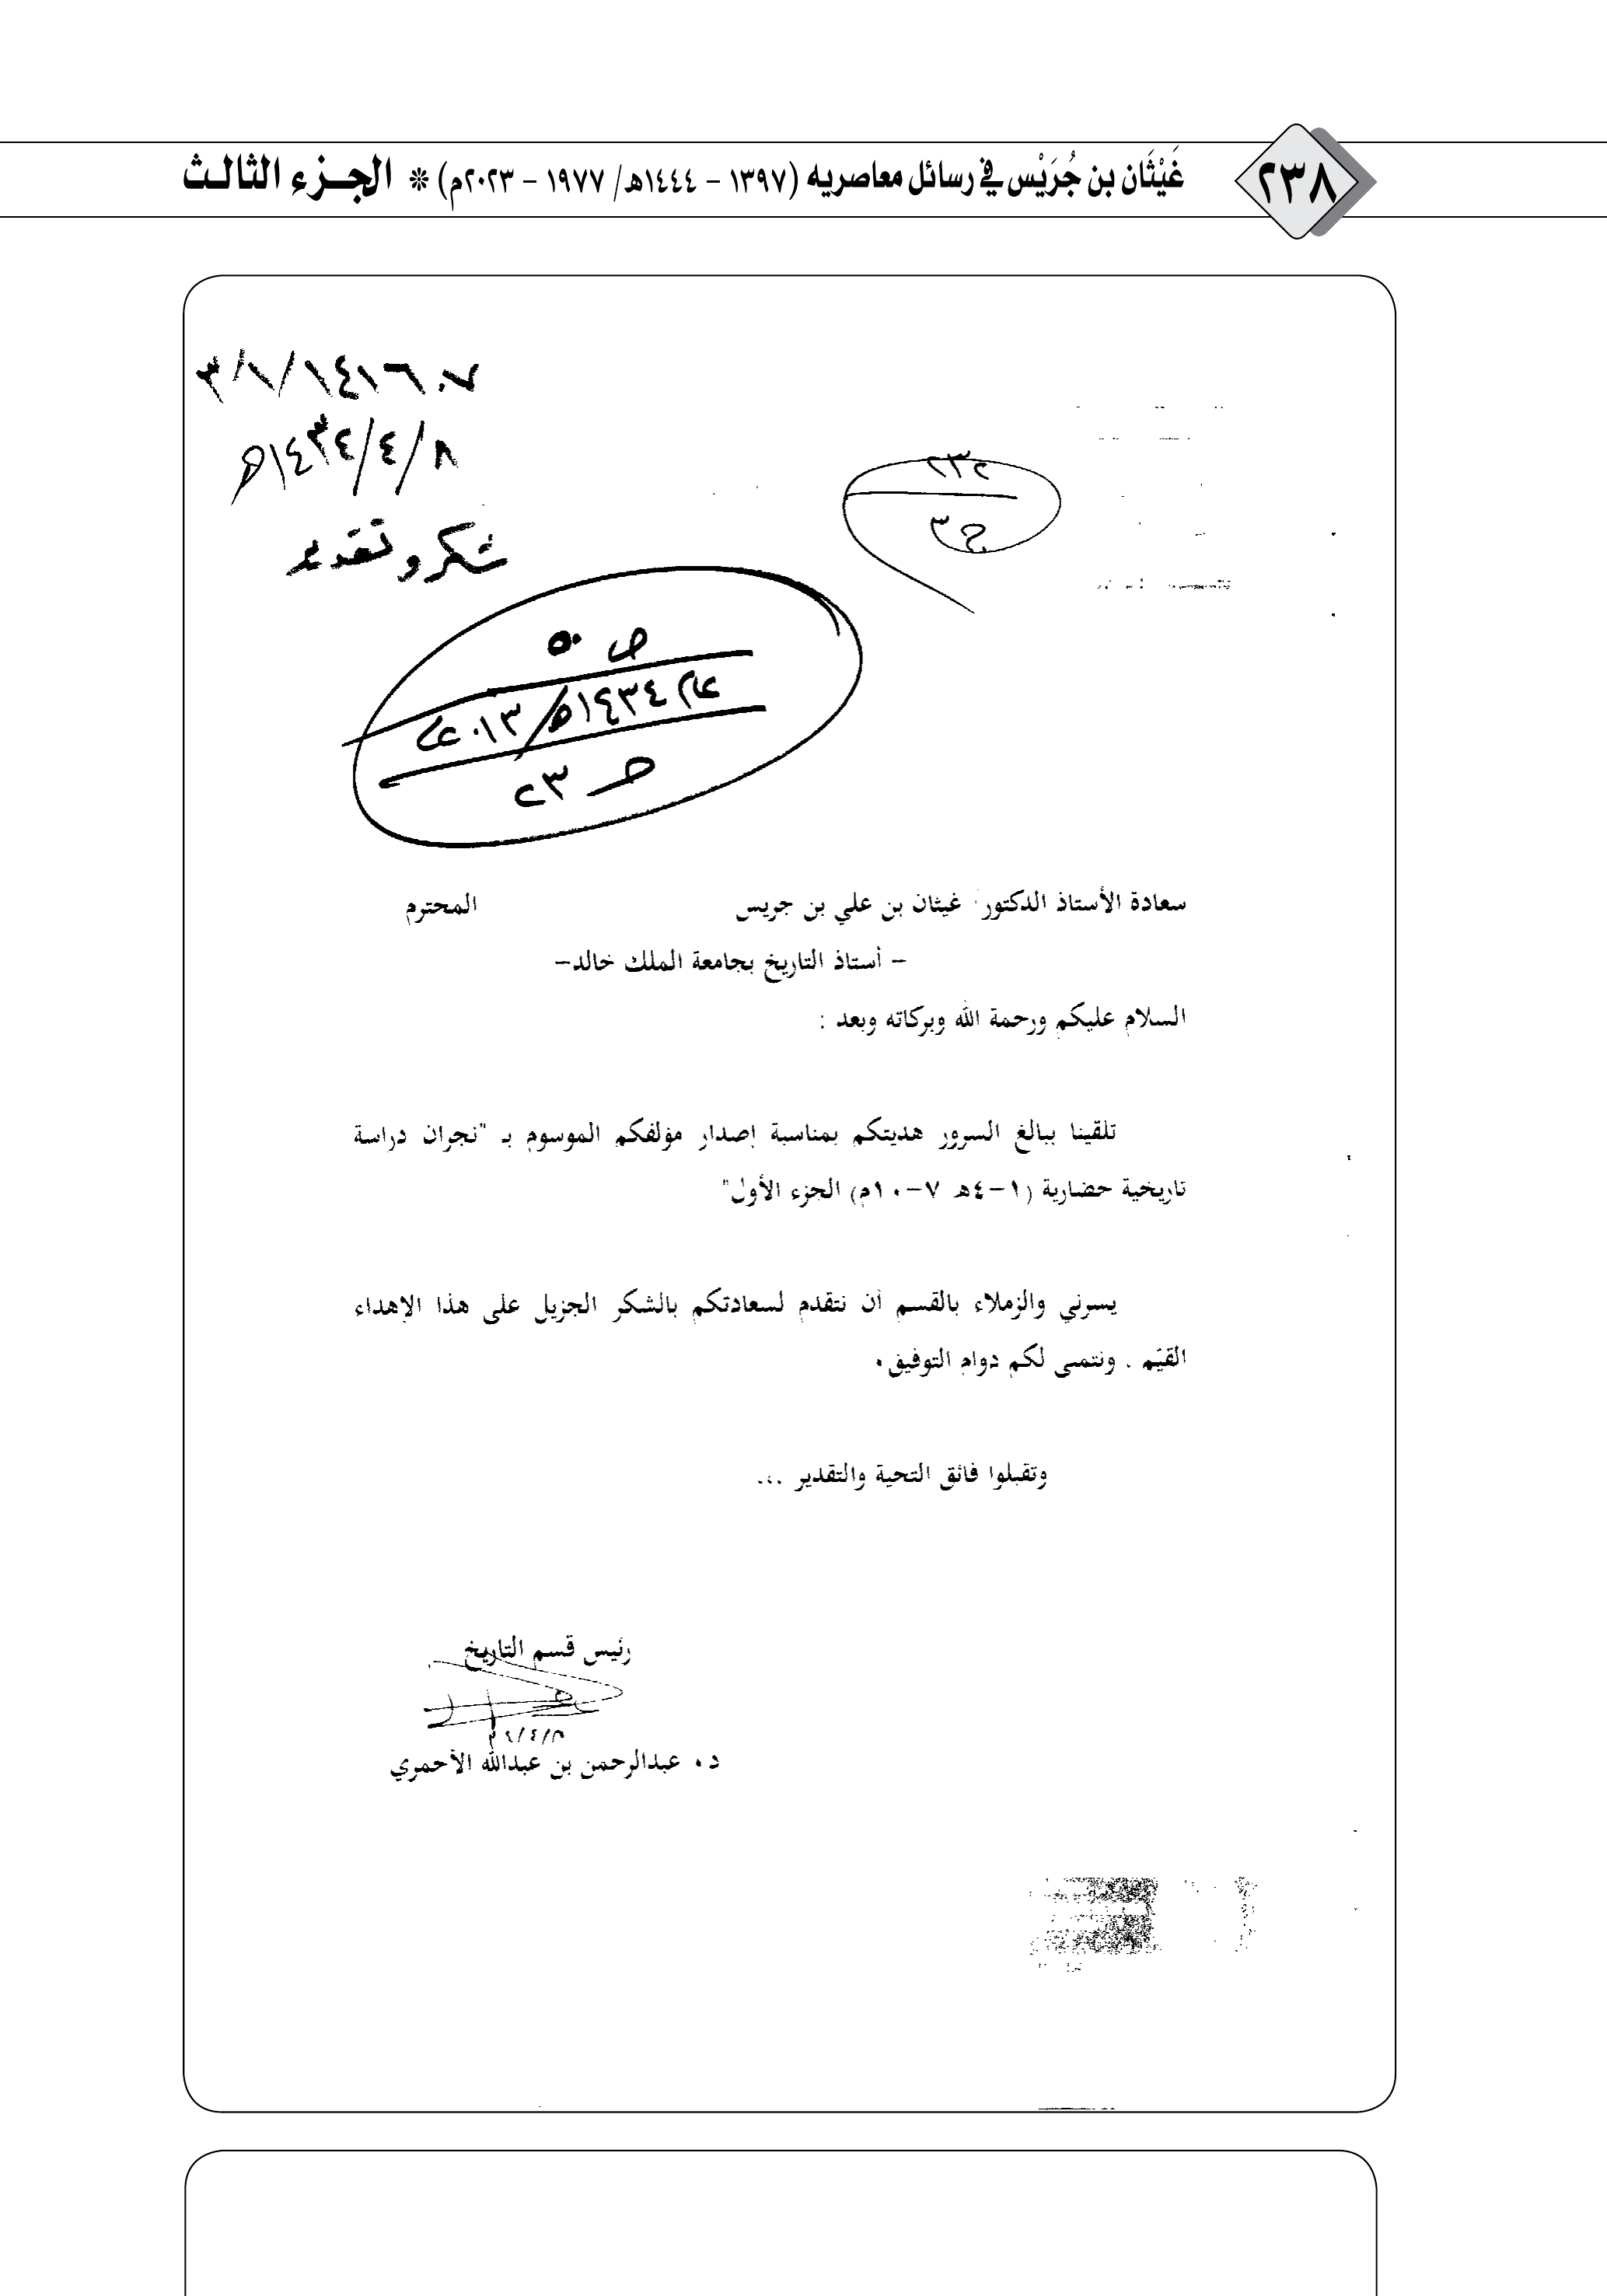 ٢٣٨
غَيْثَان بن جُرَيْس في رسائل معاصريه (١٣٩٧ - ١٤٤٤هـ/ ١٩٧٧ - ٢٠٢٣م) * الجـزء الثالث
٣/١/١/١٤١٦٠٧
٨/٤/١٤٣٤هـ
شكر وتقدير
٢٣٢
ج٣
ص ٥٠
عام ١٤٣٤هـ/ ٢٠١٣
حـ ٢٣
سعادة الأستاذ الدكتور غيثان بن علي بن جريس المحترم
- أستاذ التاريخ بجامعة الملك خالد-
السلام عليكم ورحمة الله وبركاته وبعد :
تلقينا ببالغ السرور هديتكم بمناسبة إصدار مؤلفكم الموسوم بـ "نجران دراسة
تاريخية حضارية (١-٤هـ ٧-١٠م) الجزء الأول"
يسرني والزملاء بالقسم أن نتقدم لسعادتكم بالشكر الجزيل على هذا الإهداء
القيّم . ونتمنى لكم دوام التوفيق٠
وتقبلوا فائق التحية والتقدير ...
رئيس قسم التاريخ
د٠ عبدالرحمن بن عبدالله الأحمري